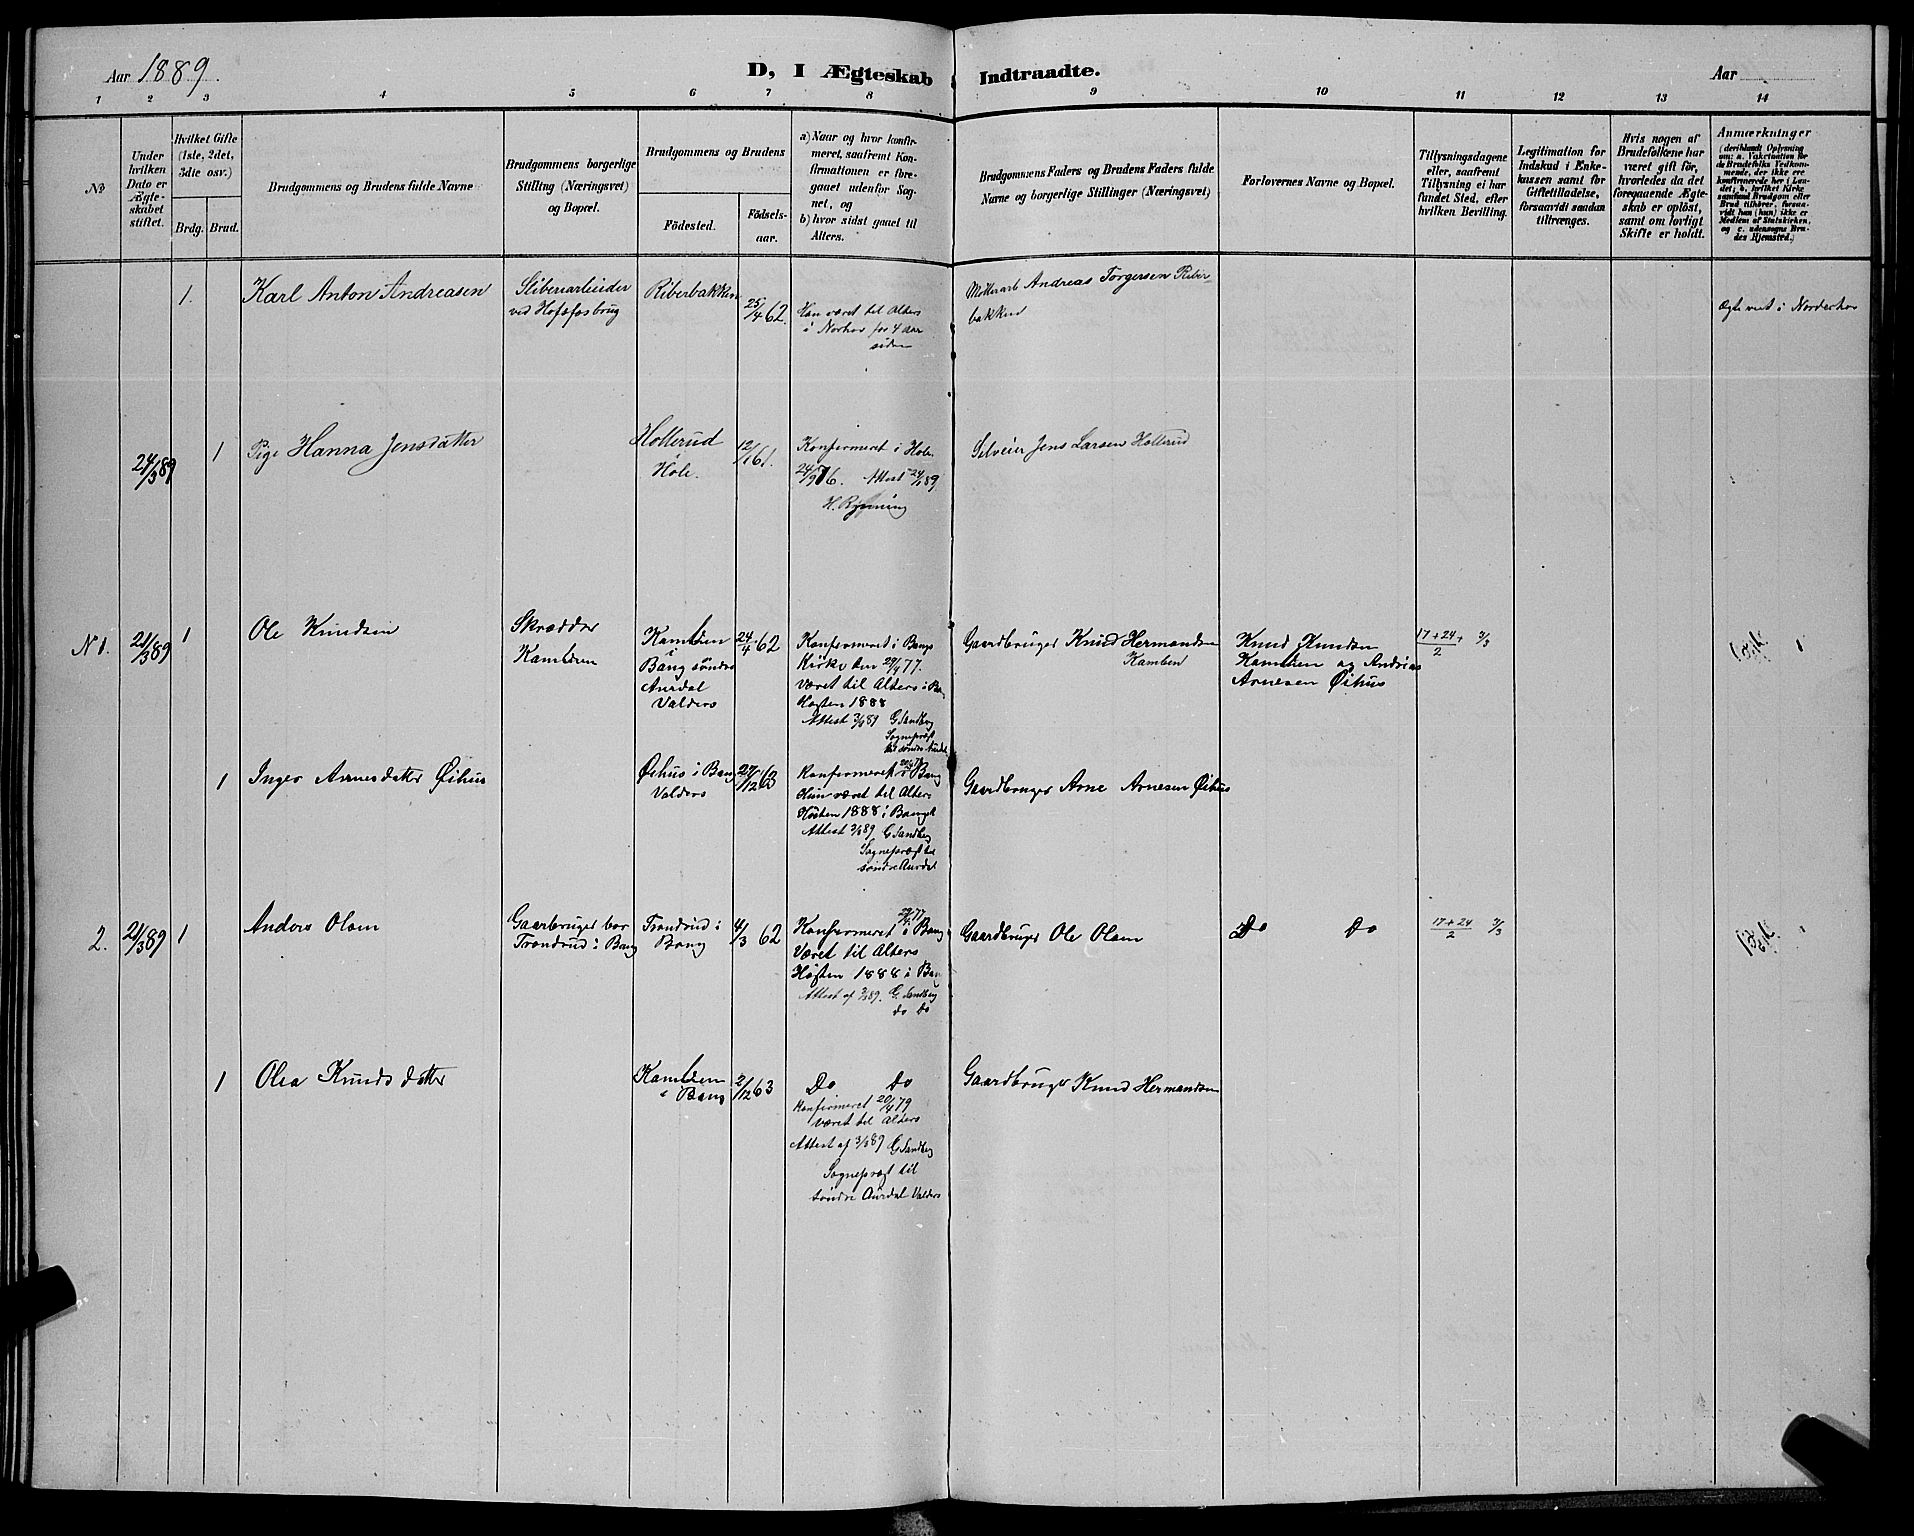 Aar 1889.
D, I Ægteskab Indtraadte.
Aar
1 2 3 4 5 6 7 8 9 10 11 12 13 14
No
Under hvilken Dato er Ægteskabet stiftet.
Hvilket Gifte (1ste, 2det, 3die osv.)
Brdg. Brud.
Brudgommens og Brudens fulde Navne
Brudgommens borgerlige Stilling (Næringsvei) og Bopæl.
Brudgommens og Brudens
Födested.
Födsels-aar.
a) Naar og hvor konfirmeret, saafremt Konfirmationen er foregaaet udenfor Sognet, og
b) hvor sidst gaaet til Alters.
Brudgommens Faders og Brudens Faders fulde Navne og borgerlige Stillinger (Næringsvei)
Forlovernes Navne og Bopæl.
Tillysningsdagene eller, saafremt Tillysning ei har fundet Sted, efter hvilken Bevilling.
Legitimation for Indskud i Enkekassen samt for Giftetilladelse, forsaavidt saadan tiltrænges.
Hvis nogen af Brudefolkene har været gift för, hvorledes da det foregaaende Ægteskab er oplöst, samt om lovligt Skifte er holdt.
Anmærkninger
(deriblandt Oplysning om: a. Vakcination for de Brudefolks Vedkommende, der ikke ere konfirmerede her i Landet; b. hvilket Kirkesamfund Brudgom eller Brud tilhörer, forsaavidt han (hun) ikke er Medlem af Statskirken, og c. udensogns Brudes Hjemsted.)
1.
Karl Anton Andreasen
Sliberiarbeider
ved Hofsfosbrug
Riberbakken
25/4 62.
Han været til Alters
i Norhov for 4 Aar
siden
Möllerarb Andreas Torgersen Riber-
bakken
Ægteviet i Norderhov
24/3 89
1
Pige Hanna Jensdatter
Hollerud
Hole.
12/1 61.
Konfirmeret i Hole
24/9 76. Attest 24/1 89
H. Rynning
Selveier Jens Larsen Hollerud
N 1.
21/3 89
1
Ole Knudsen
Skrædder
Kambden
Kambden
i
Bang söndre
Aurdal
Valders
24/4 62
Konfirmeret i Bangs
Kirke den 29/4 77.
Været til Alters i Ba
Høsten 1888
Attest 3/3 89 G Sandberg
Sognepræst
til søndre Aurdal
Gaardbruger Knud Hermandsen
Kamben
Knud Knudsen
Kambden og Andrias
Arnesen Øihus
17 + 24 +/2 3/3
1
Inger Arnesdatter Øihus
Øihus i Bang
Valders
27/12 63
Konfirmeret i Bang
Hun været til Alters
Høsten 1888 i Banget
Attest 3/3 89 G Sandberg
Sognepræst til
söndre Aurdal
Gaardbruger Arne Arnesen Øihus
2.
21/3 89
1
Anders Olsen
Gaarbruger bor
Trondrud i Bang
Trondrud i
Bang
4/3 62
29/4 77
Konfirmeret i Bang
Været til Alters
Høsten 1888 i Ban
Attest af 3/3 89. G. Sandberg
do Do
Gaardbruger Ole Olsen
Do Do
17 + 24/2 3/3
1
Olea Knudsdatter
Kambden
i Bang
2/12 63
Do Do
Konfirmeret 20/4 79
været til Alters
Attest af 3/3 89 G Sandberg
Sognepræst til
söndre Aurdal Valders
Gaardbruger Knud Hermandsen